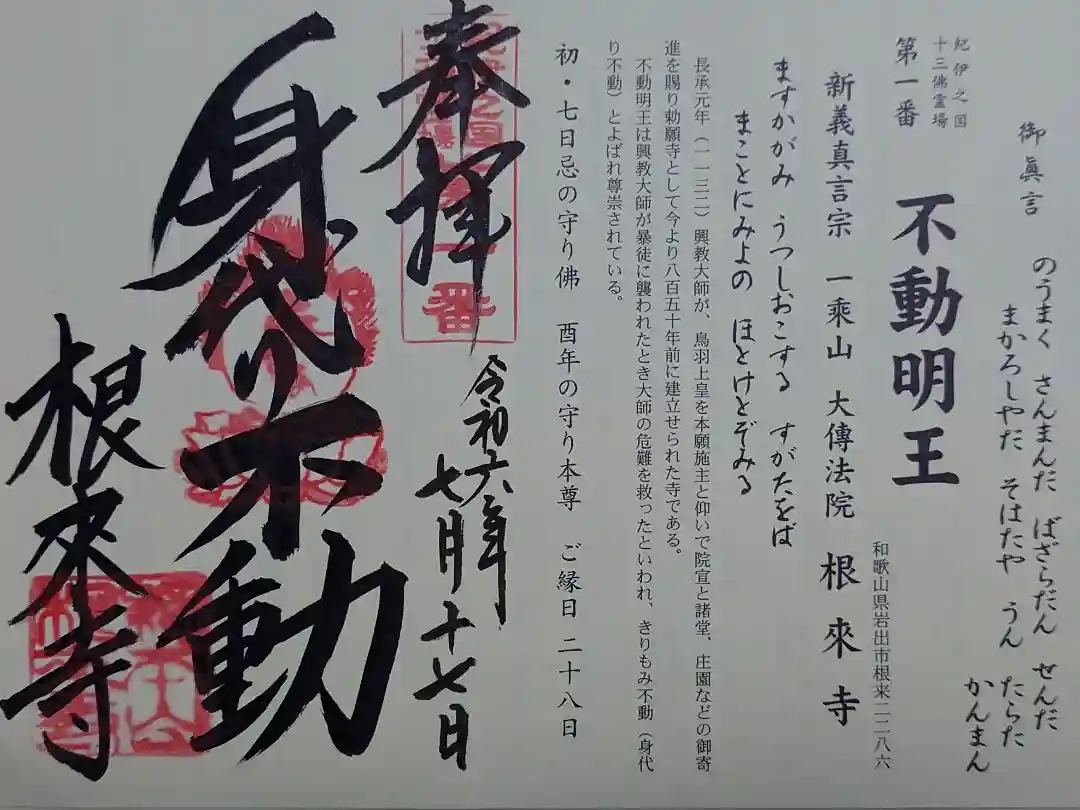 御眞言
のうまく さんまんだ ばざらだん せんだ
まかろしやだ そはたや うん たらた
かんまん
紀伊之国
十三佛霊場
第一番
不動明王
和歌山県岩出市根来二二八六
新義真言宗 一乘山 大傳法院 根來寺
ますかがみ うつしおこする すがたをば
まことにみよの ほとけとぞみる
長承元年（一一三二）興教大師が、鳥羽上皇を本願施主と仰いで院宣と諸堂、庄園などの御寄
進を賜り勅願寺として今より八百五十年前に建立せられた寺である。
不動明王は興教大師が暴徒に襲われたとき大師の危難を救ったといわれ、きりもみ不動（身代
り不動）とよばれ尊崇されている。
初・七日忌の守り佛 酉年の守り本尊 ご縁日 二十八日
奉拝
令和六年
七月十七日
身代り不動
根來寺